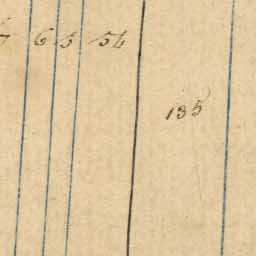 7 6 5 54
135